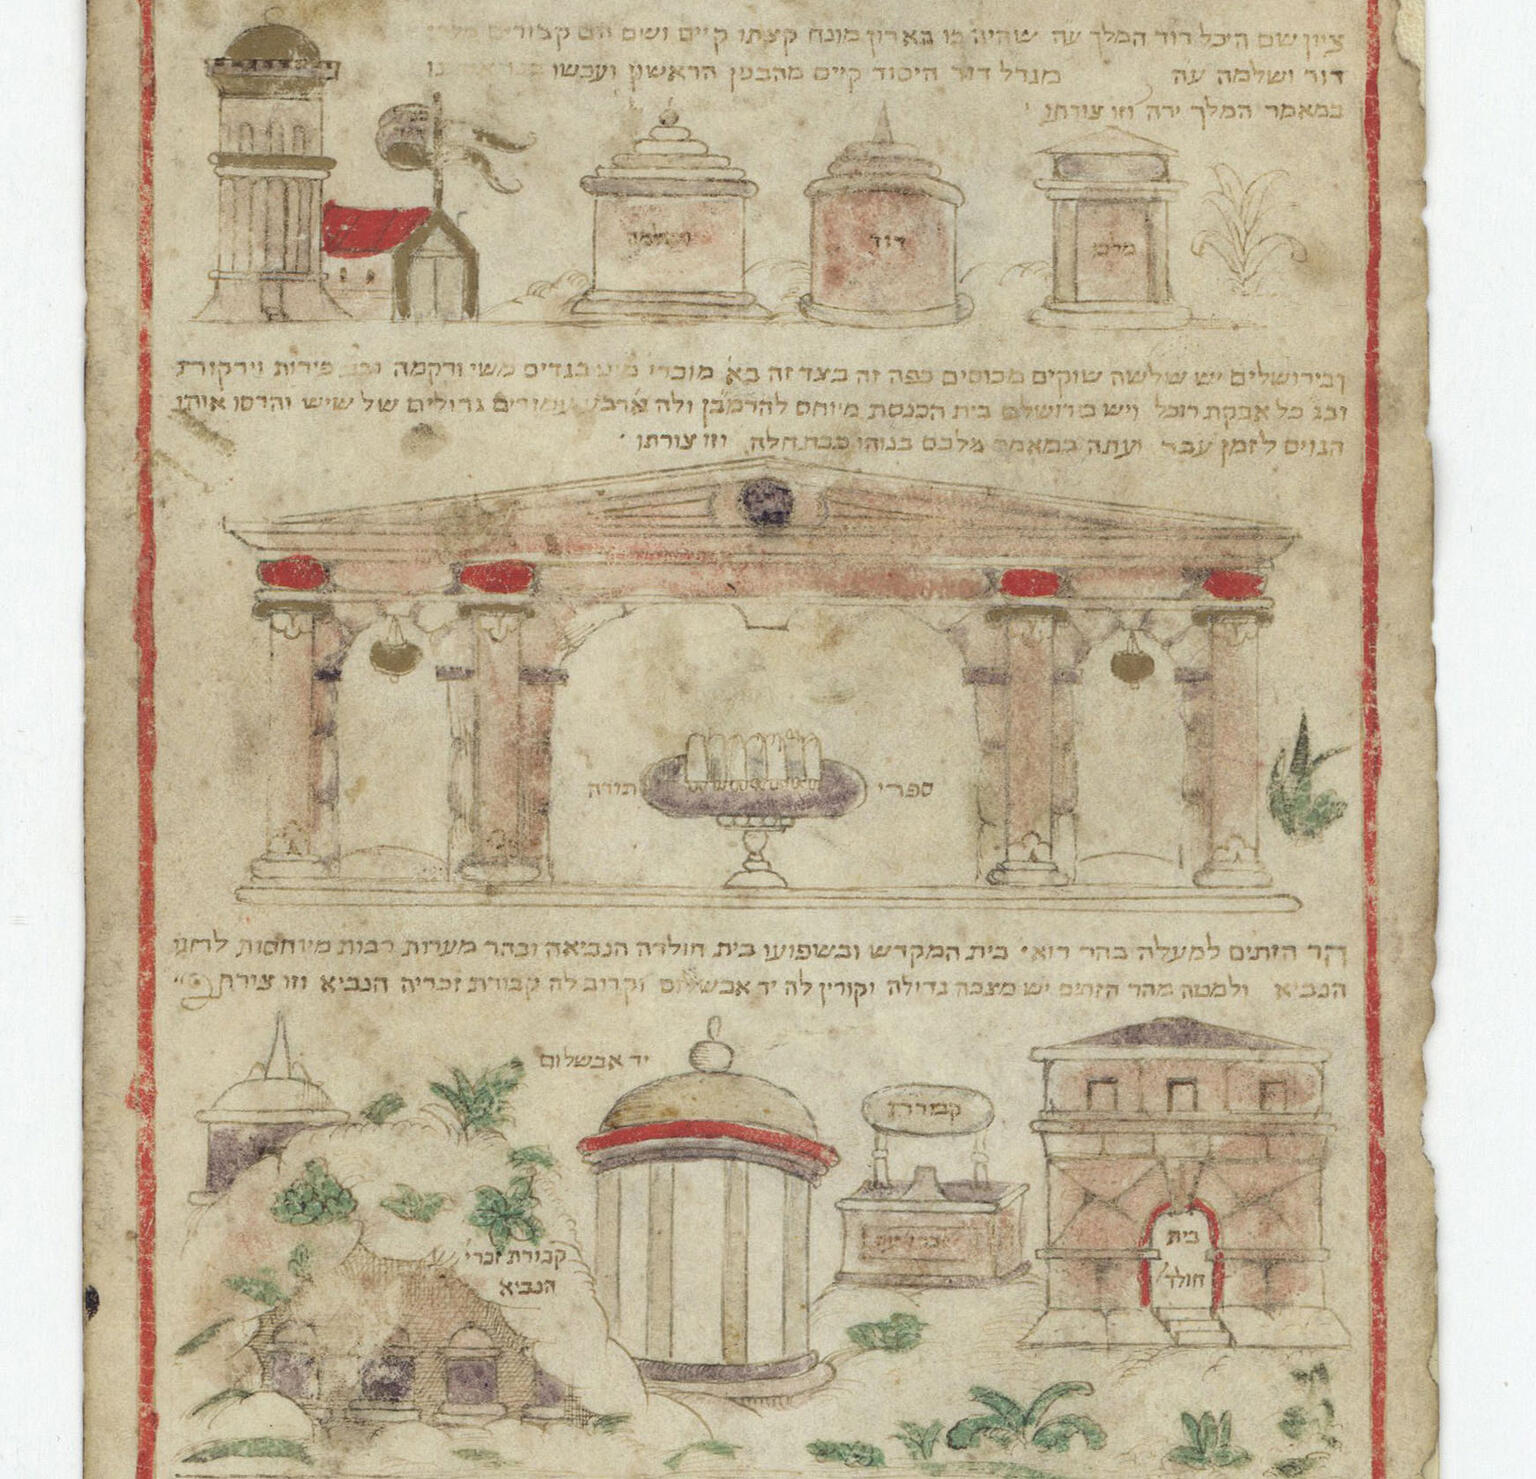 ציון שם היכל דוד המלך עה שהיה בו הארון מונח קצתו קיים ושם הם קבורים מלכי
דוד ושלמה עה מגדל דוד היסוד קיים מהבנין הראשון ועכשו
במאמר המלך ירה וזו צורתו
שלמה
דוד
מלכי
ובירושלים יש שלשה שוקים מכוסים כפה זה בצד זה בא מוכרי בגדים משי ורקמה ובג פירות וירקורת
ובג כל אבקת רוכל ויש בירושלם בית הכנסת מיוחס להרמבן ולה ארבע עמודים גדולים של שיש והרסו אותו
הגוים לזמן עבר ועתה במאמר מלכם בנוהו כבתחלה וזו צורתו
ספרי תורה
והר הזתים למעלה בהר רואי בית המקדש ובשפועו בית חולדה הנביאה ובהר מערות רבות מיוחסות לחגי
הנביא ולמטה מהר הזתים יש מצבה גדולה וקורין לה יד אבשלום וקרוב לה קבורת זכריה הנביא וזו צורת
יד אבשלום
קבורת
בית
חולד
קבורת זכרי
הנביא